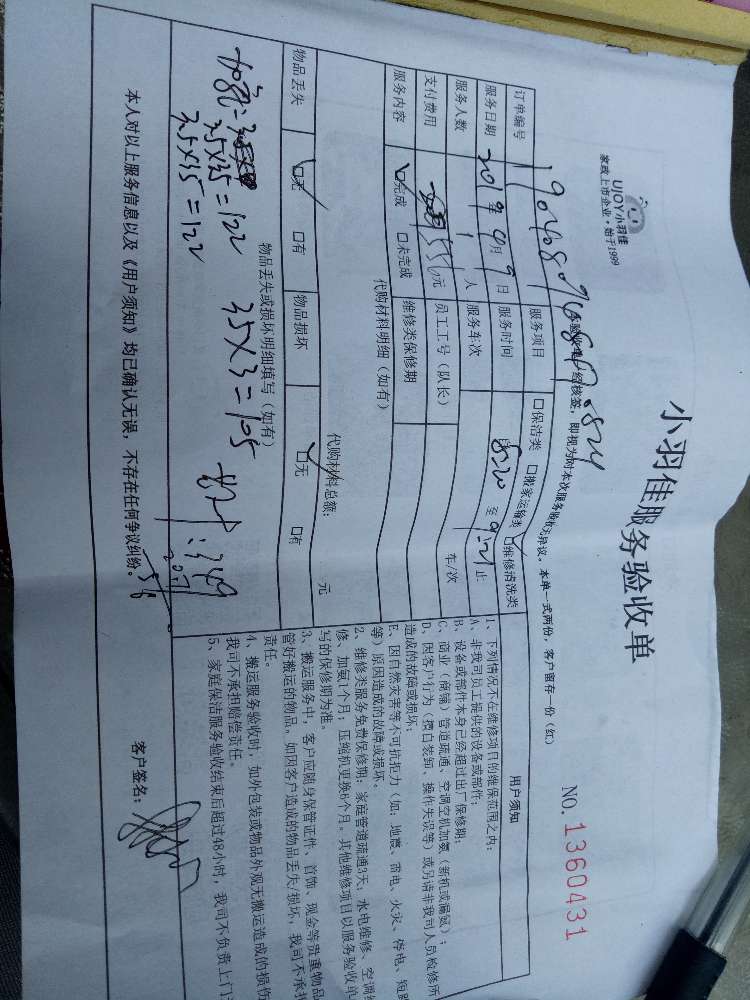 UJOY小羽佳
家政上市企业·始于1999
小羽佳服务验收单
NO. 1360431
本单一式两份,客户留存一份(红)
订单编号
服务项目 □保洁类 □搬家运输类 □维修清洗类
服务日期 2019年4月9日 服务时间 8:20 至 9:21 止
服务人数 1 人 服务车次 车/次
支付费用 元 员工工号(队长)
服务内容 □完成 □未完成 维修类保修期
代购材料明细(如有)
代购材料总额: 元
物品丢失 □无 □有 物品损坏 □无 □有
物品丢失或损坏明细填写(如有)
35×35=122 35×3=105
35×35=122
本人对以上服务信息以及《用户须知》均已确认无误,不存在任何争议纠纷。
用户须知
1、下列情况不在维修项目的维保范围之内:
A、非我司员工提供的设备或部件;
B、设备或部件本身已经超过出厂保修期;
C、商业(商铺)管道疏通、空调空机加氨(新机或漏氨);
D、因客户行为(擅自装卸、操作失误等)或另请非我司人员检修所
造成的故障或损坏;
E、因自然灾害等不可抗拒力(如:地震、雷电、火灾、停电、短路
等)原因造成的故障或损坏。
2、维修类服务免费保修期:家庭管道疏通3天;水电维修、空调维
修、加氨1个月;压缩机更换6个月。其他维修项目以服务验收单
写的保修期为准。
3、搬运服务中,客户应随身保管证件、首饰、现金等贵重物品
管好搬运的物品。如因客户造成的物品丢失/损坏,我司不承担
责任。
4、搬运服务验收时,如外包装或物品外观无搬运造成的损伤
我司不承担赔偿责任。
5、家庭保洁服务验收结束后超过48小时,我司不负责上门
客户签名: